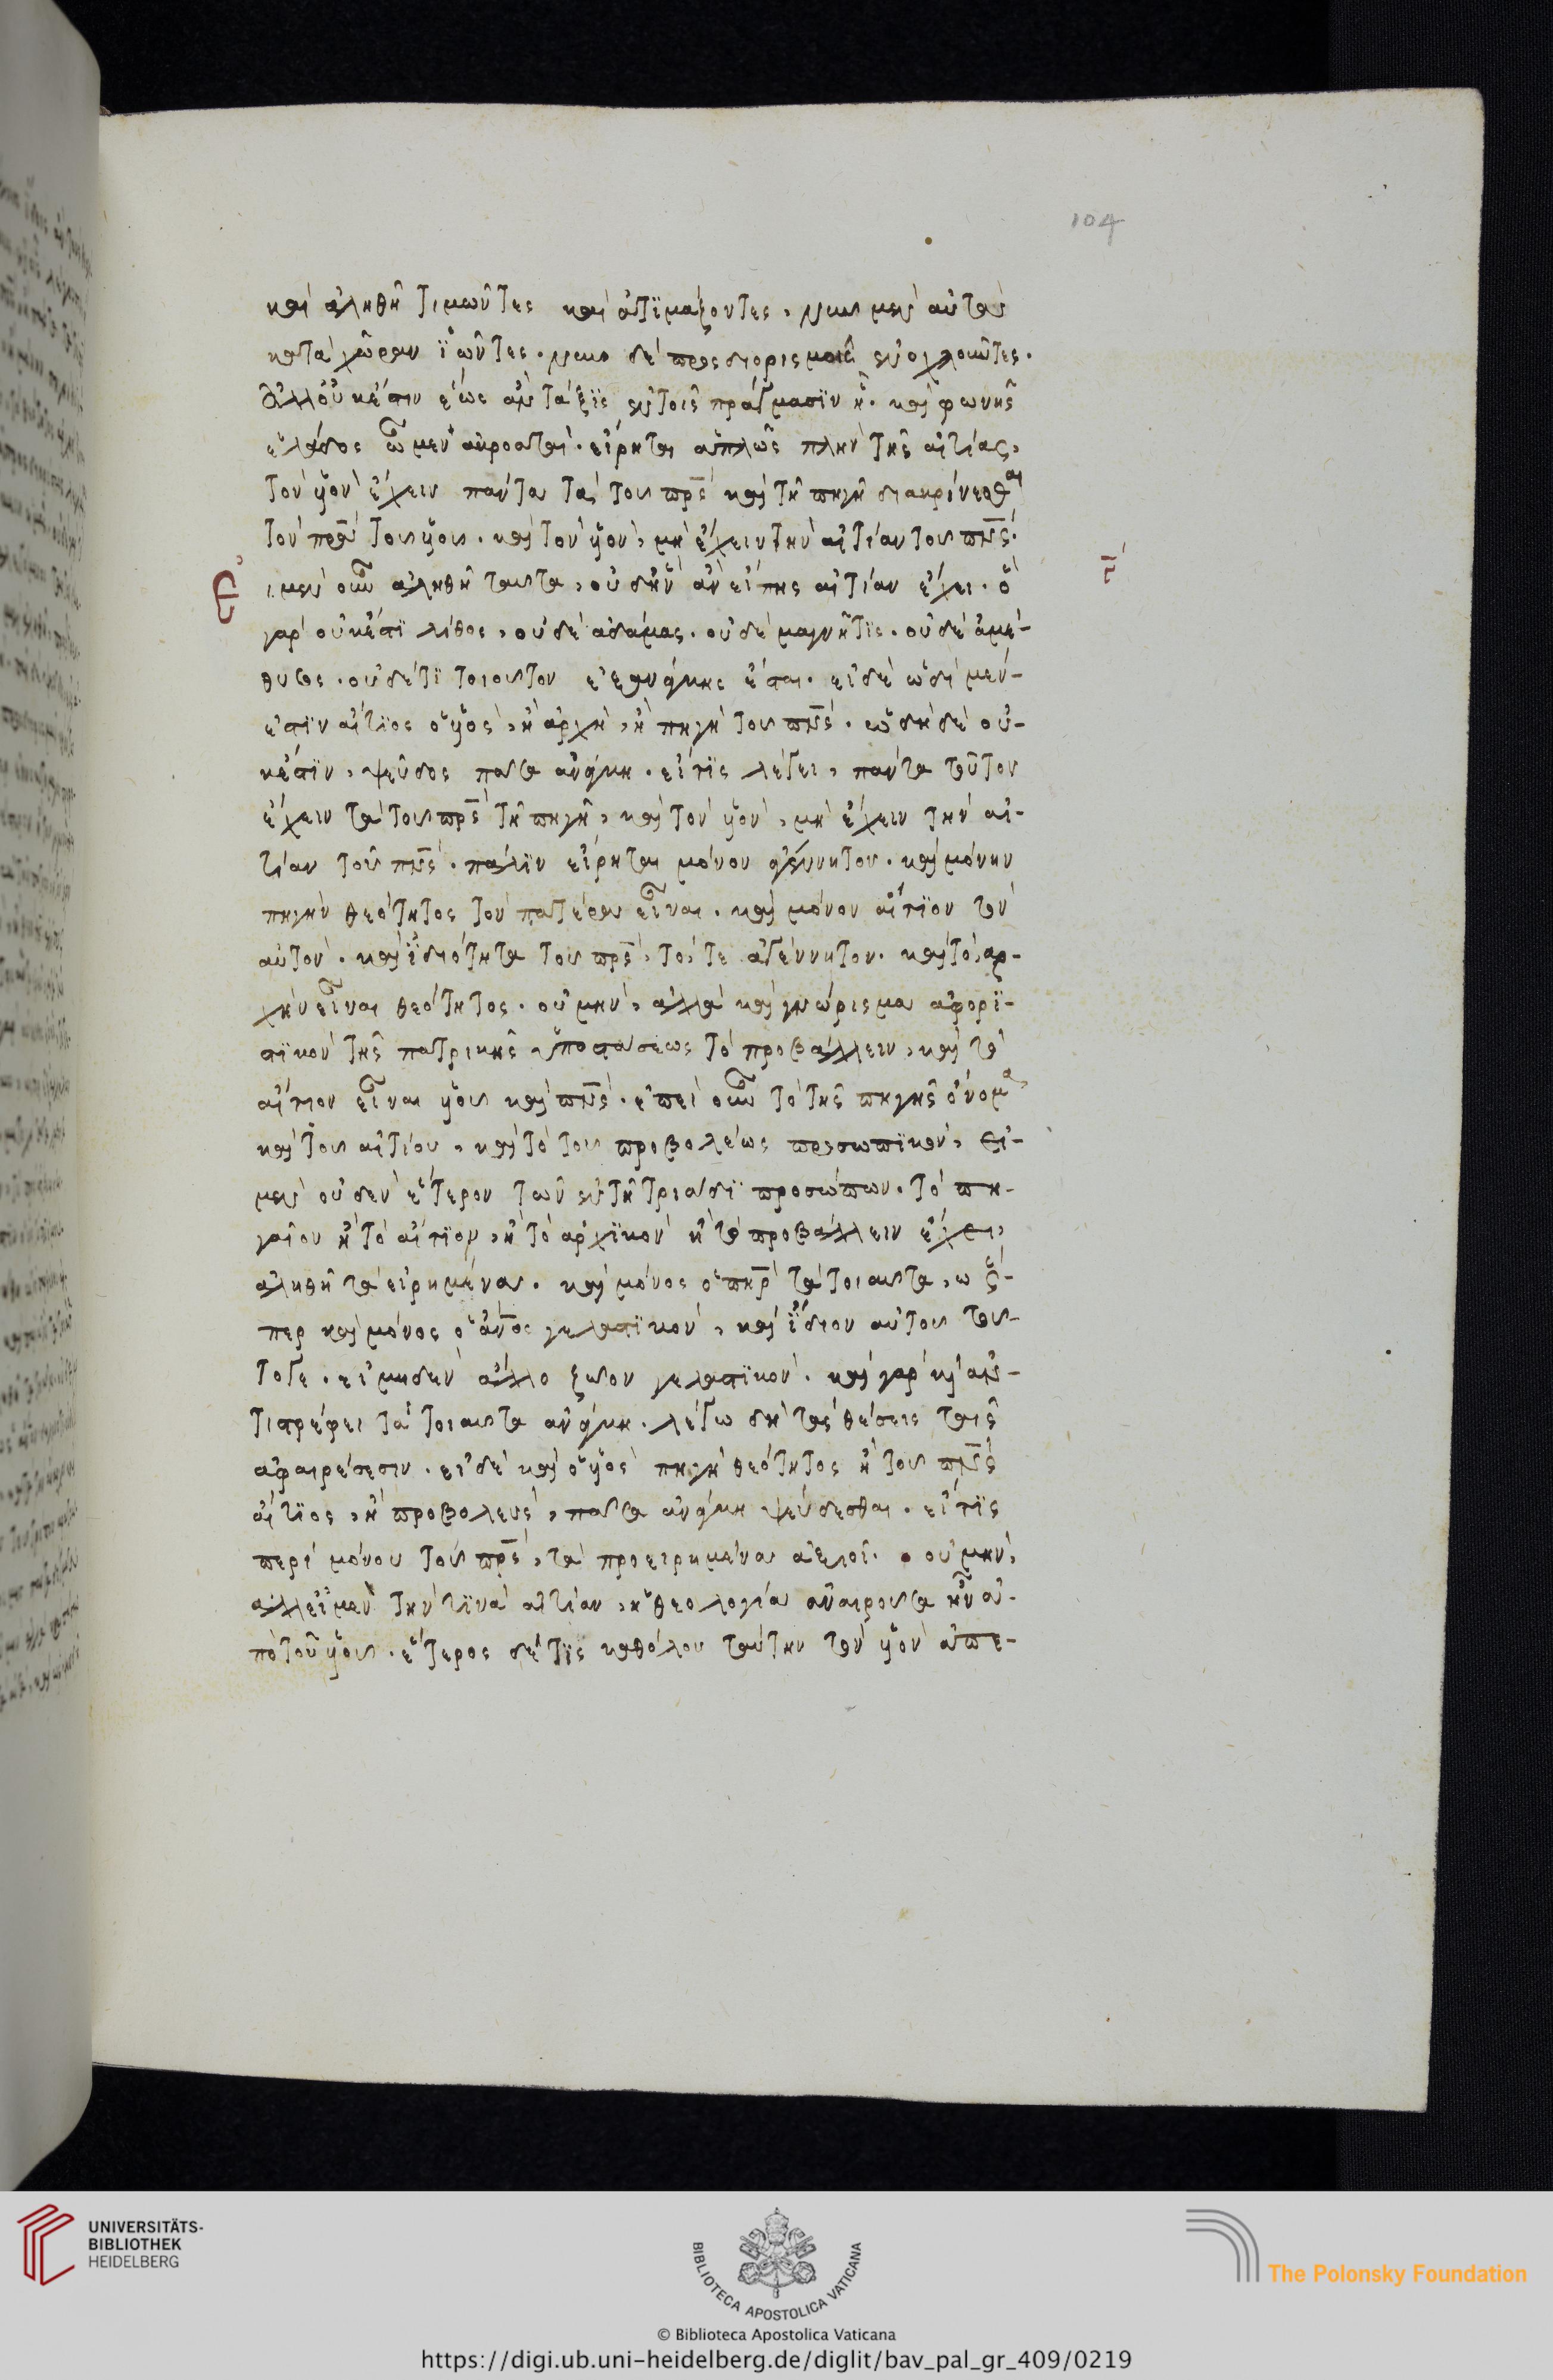 104
καὶ ἀληθῆ τιμῶντες καὶ ἀτϊμάζοντες, νυν μὲν αὐτὰς
κατὰ χώραν ἐῶντες. νυν δὲ προσδιορισμοῖς ἐνοχλοῦντες.
ἀλλ οὐκέστιν ἕως ἂν τάξϊς ἐν τοῖς πράγμασϊν ᾖ. καὶ φωνῆς
ἑλλάδος ὦμεν ἀκροαταί. εἴρηται ἁπλῶς πλὴν τῆς αἰτίας,
τὸν υἱὸν ἔχειν πάντα τὰ τοῦ πρς καὶ τῆ πηγῆ διακρίνεσθαι
τὸν πρα τοῦ υἱοῦ. καὶ τὸν υἱὸν, μὴ ἔχειν τὴν αἰτίαν τοῦ πνς.
Εἰ μὲν οὖν ἀληθῆ ταῦτα, οὐδ ἣν ἂν εἴπης αἰτίαν ἔχει. ὃ
γὰρ οὐκέστϊ λίθος, οὐδὲ ἀδάμας. οὐδὲ μαγνῆτϊς. οὐδὲ ἀμέ-
θυσος. οὐδέ τϊ τοιοῦτον ἐξανάγκης ἔσται. εἰ δὲ ὡδὶ μέν-
ἐστϊν αἴτϊος ὁ υἱὸς, ἢ ἀρχὴ, ἢ πηγὴ τοῦ πνς. ὡδὶ δὲ οὐ-
κέστϊν, ψεῦδος πᾶσα ἀνάγκη. εἴ τϊς λέγει, πάντα ταῦτον
ἔχειν τὰ τοῦ πρς τῆ πηγῆ, καὶ τὸν υἱὸν, μὴ ἔχειν τὴν αἰ-
τίαν τοῦ πνς. πάλϊν εἴρηται μόνον ἀγέννητον. καὶ μόνην
πηγὴν θεότητος τὸν πατέρα εἶναι. καὶ μόνον αἴτϊον τὸν
αὐτὸν. καὶ ἰδιότητα τοῦ πρς, τό, τε ἀγέννητον. καὶ τὸ, ἀρ-
χὴν εἶναι θεότητος. οὐ μὴν, ἀλλὰ καὶ γνώρισμα ἀφορϊ-
στϊκὸν τῆς πατρικῆς ὑποστάσεως τὸ προβάλλειν, καὶ τὸ
αἴτιον εἶναι υἱοῦ καὶ πνς. ἐπεὶ οὖν τὸ τῆς πηγῆς ὄνομα
καὶ τοῦ αἰτίου, καὶ τὸ τοῦ προβολέως προσωπϊκὸν, εἰ-
μὲν οὐδὲν ἕτερον τῶν ἐν τῆ τριάδϊ προσώπων. τὸ πη-
γαῖον ἢ τὸ αἴτϊον, ἢ τὸ ἀρχϊκὸν ἢ τὸ προβάλλειν ἔχει,
ἀληθῆ τὰ εἰρημένα. καὶ μόνος ὁ πηρ τὰ τοιαῦτα, ὥς-
περ καὶ μόνος ὁ ἀνος γελαστϊκὸν, καὶ ἴδιον αὐτοῦ τοῦ-
τό γε. εἰ μηδὲν ἄλλο ζῶον γελαστϊκὸν. καὶ γὰρ καὶ ἀν-
τιστρέφει τὰ τοιαῦτα ἀνάγκη. λέγω δὴ τὰς θέσεις ταῖς
ἀφαιρέσεσιν. εἰ δὲ καὶ ὁ υἱὸς πηγὴ θεότητος ἢ τοῦ πνς
αἴτϊος, ἢ προβολεὺς, πᾶσα ἀνάγκη ψεύδεσθαι. εἴ τϊς
περὶ μόνου τοῦ πρς, τὰ προειρημένα ἀξιοῖ. οὐ μὴν,
ἀλλ εἰ μὲν τὴν τϊνὰ αἰτίαν, ἡ θεολογία ἀναιροῦσα ἦν ἀ-
πὸ τοῦ υἱοῦ. ἕτερος δέ τϊς καθόλου ταύτην τὸν υἱὸν ἀπε-
UNIVERSITÄTS-
BIBLIOTHEK
HEIDELBERG
BIBLIOTECA APOSTOLICA VATICANA
The Polonsky Foundation
© Biblioteca Apostolica Vaticana
https://digi.ub.uni-heidelberg.de/diglit/bav_pal_gr_409/0219